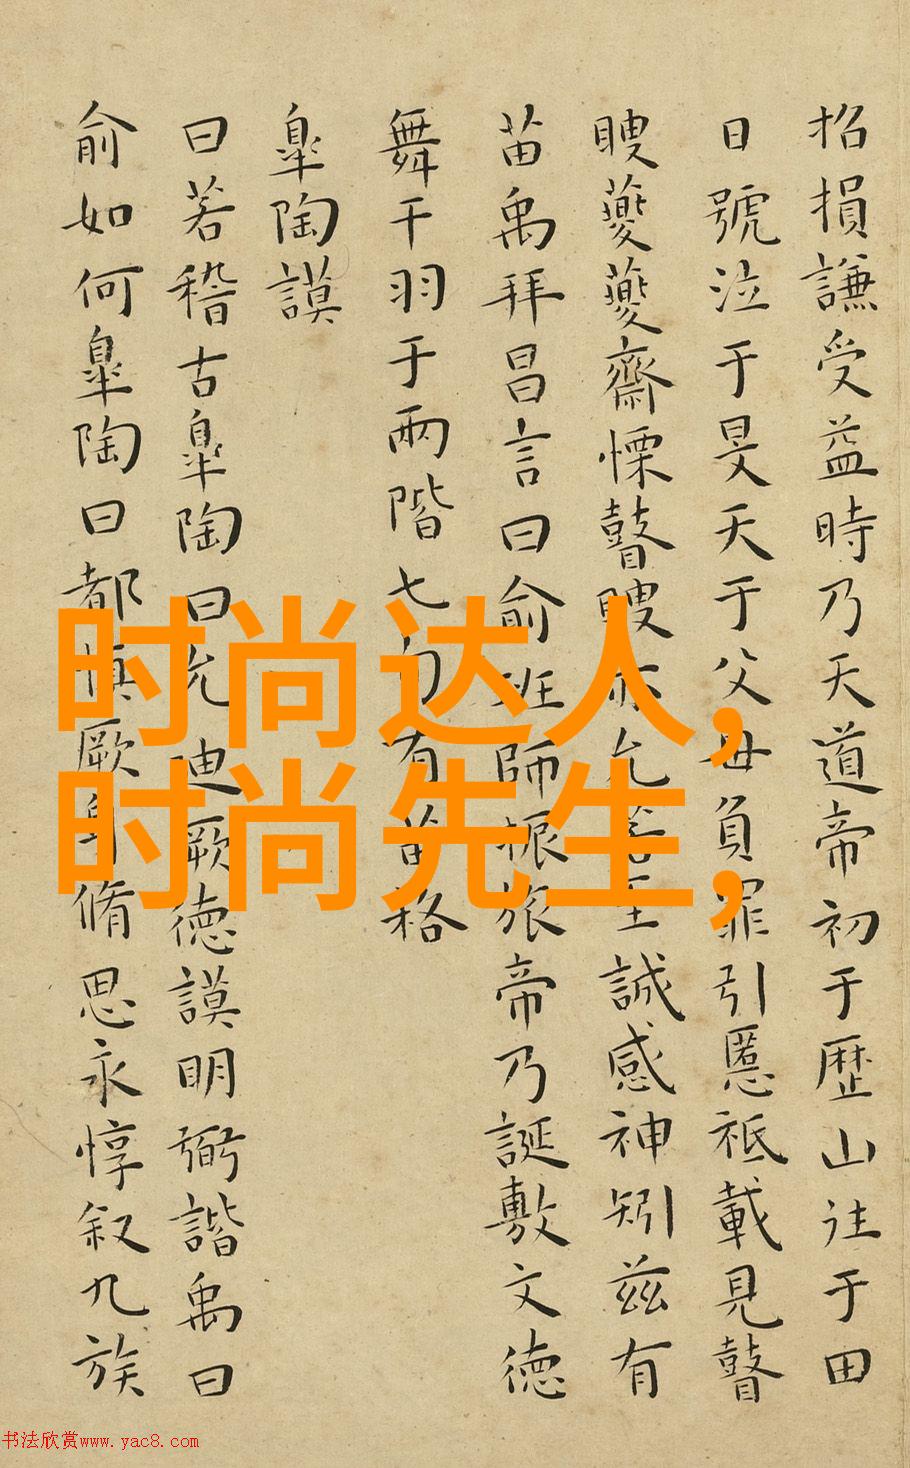 招損謙受益時乃天道帝初于歷山往于田
日號泣于旻天于父母負罪引慝祗載見瞽
瞍夔夔齋慄瞽瞍亦允若至諴感神矧茲有
苗禹拜昌言曰俞班師振旅帝乃誕敷文德
舞干羽于兩階七旬有苗格
皐陶謨
曰若稽古皐陶曰允迪厥德謨明弼諧禹曰
俞如何皐陶曰都慎厥身脩思永惇叙九族
时尚达人,
时尚先生,
书法欣赏www.yac8.com